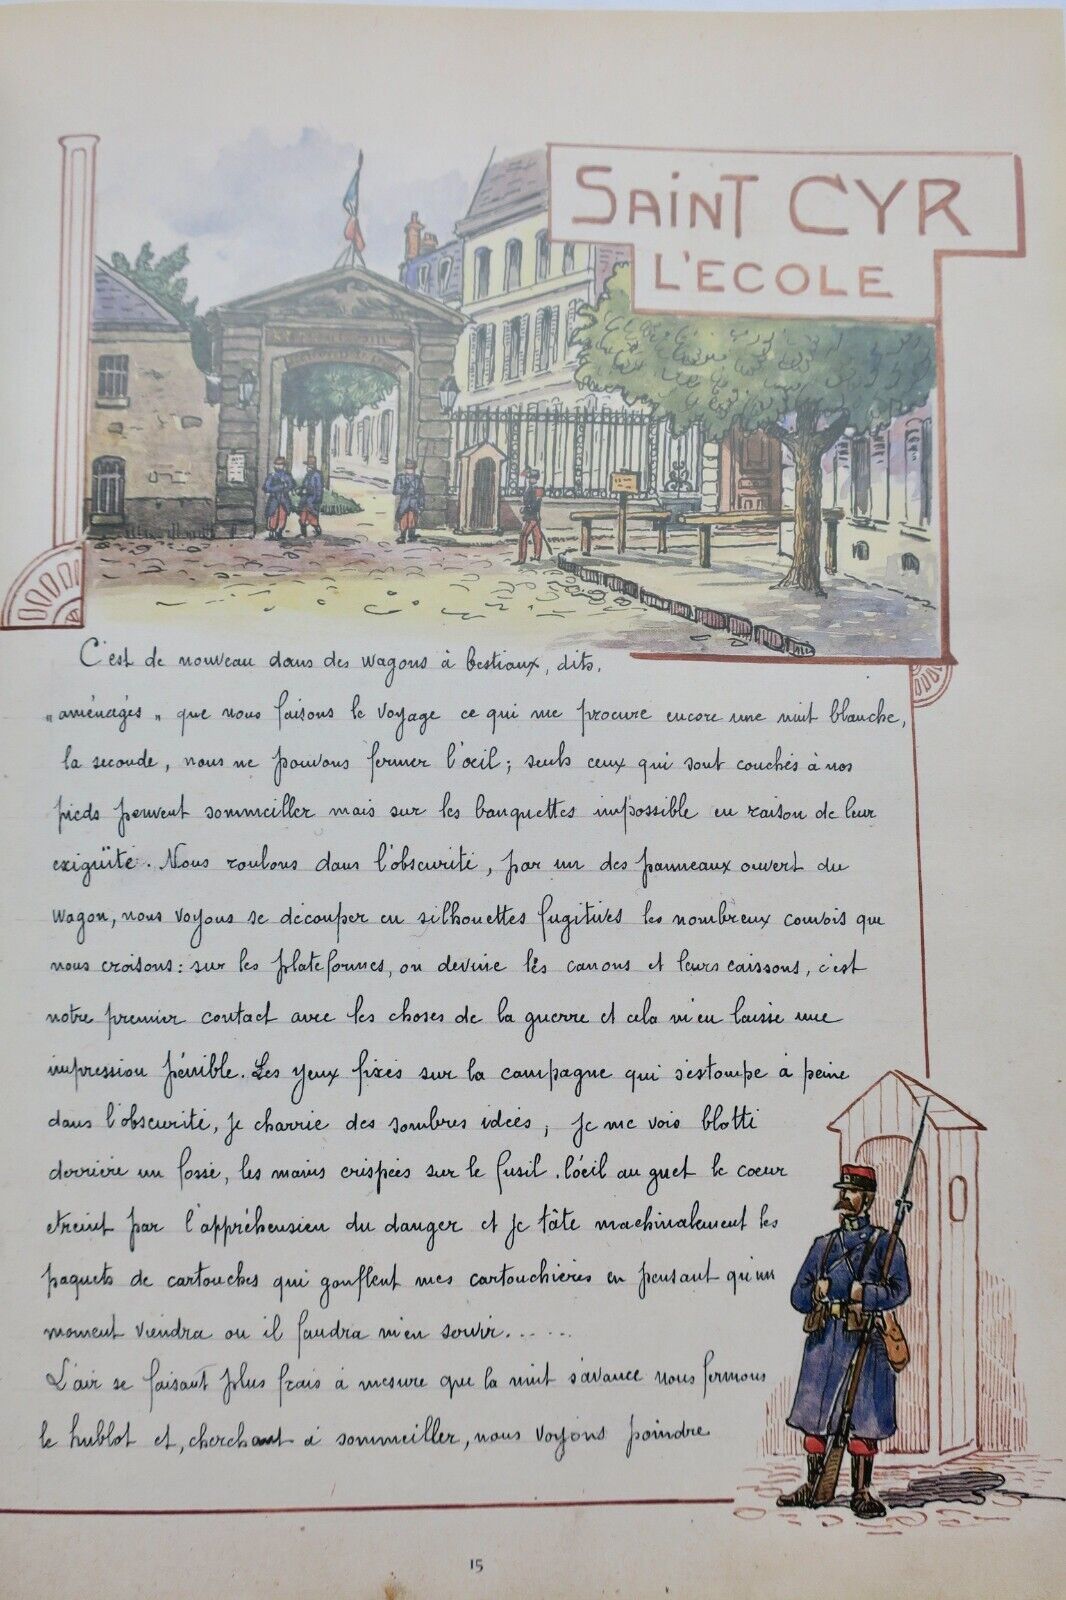 SAINT CYR
L'ECOLE
C'est de nouveau dans des wagons à bestiaux, dits,
"aménagés" que nous faisons le voyage ce qui me procure encore une nuit blanche,
la seconde, nous ne pouvons fermer l'œil; seuls ceux qui sont couchés à nos
pieds peuvent sommeiller mais sur les banquettes impossible en raison de leur
exigüité. Nous roulons dans l'obscurité, par un des panneaux ouvert du
wagon, nous voyons se découper en silhouettes fugitives les nombreux convois que
nous croisons: sur les plateformes, on devine les canons et leurs caissons, c'est
notre premier contact avec les choses de la guerre et cela m'en laisse une
impression pénible. Les yeux fixés sur la campagne qui s'estompe à peine
dans l'obscurité, je charrie des sombres idées; je me vois blotti
derrière un fossé, les mains crispées sur le fusil. l'œil au guet le cœur
etreint par l'appréhension du danger et je tâte machinalement les
paquets de cartouches qui gonflent mes cartouchières en pensant qu'un
moment viendra ou il faudra m'en servir......
L'air se faisant plus frais à mesure que la nuit s'avance nous fermons
le hublot et, cherchant à sommeiller, nous voyons poindre
15